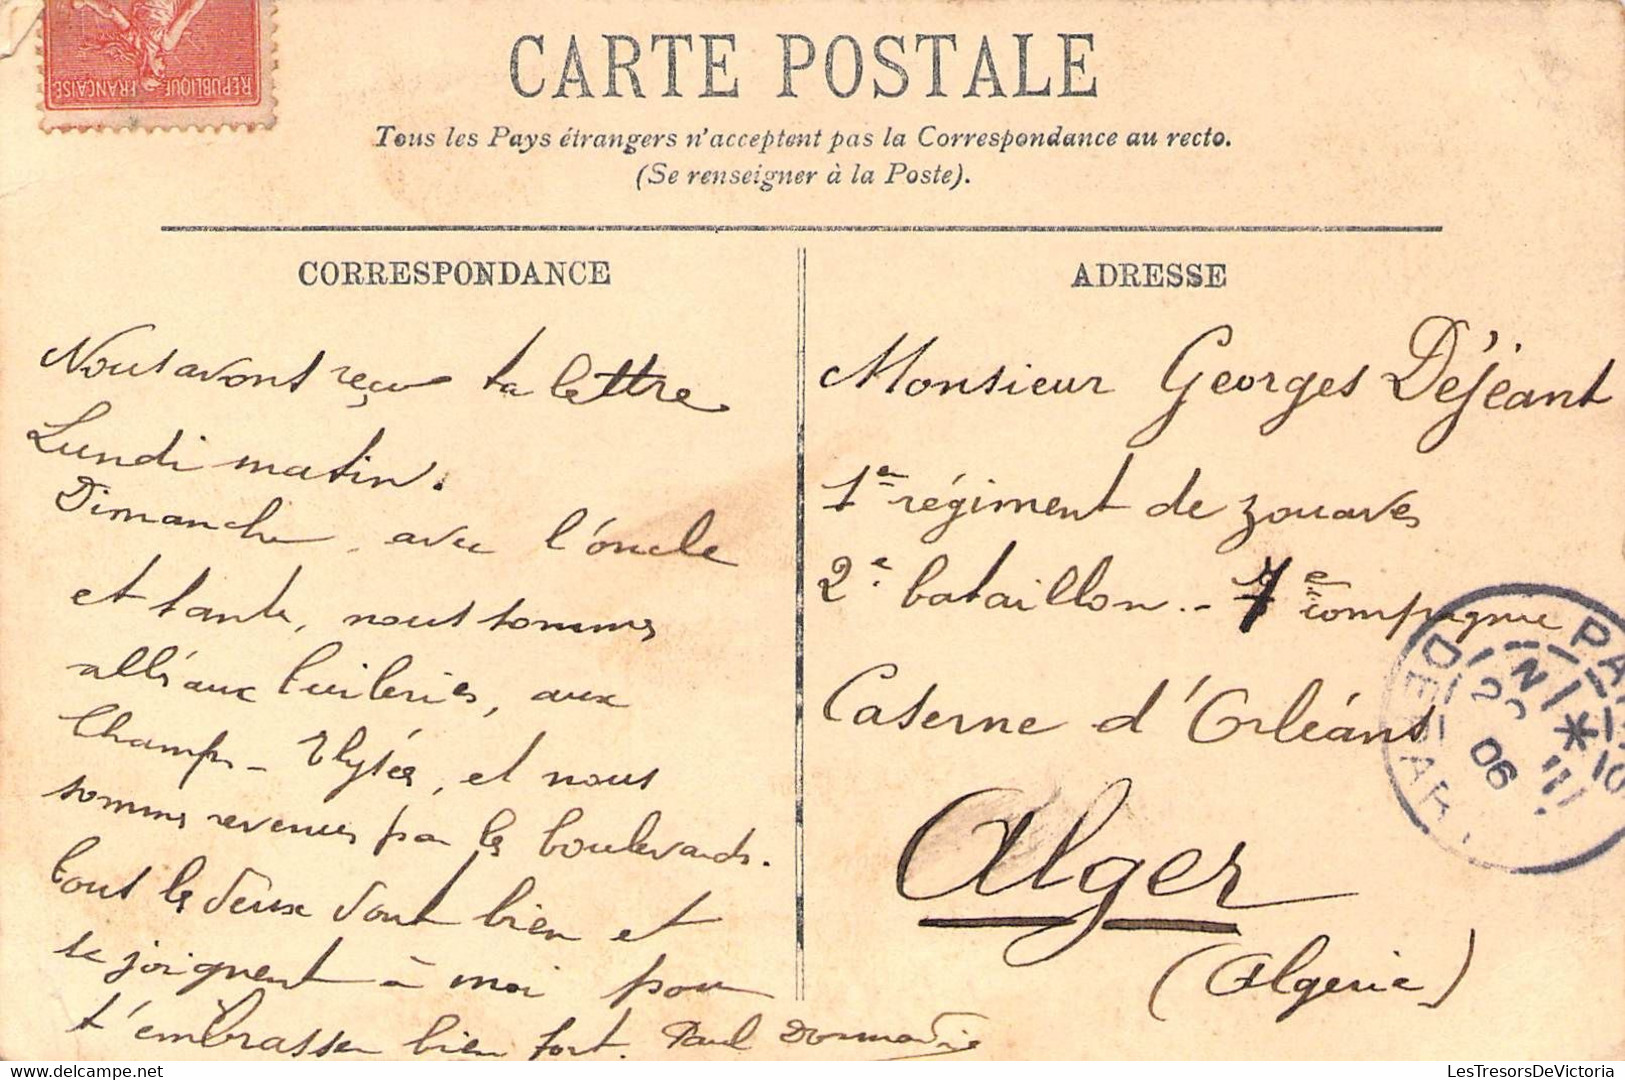 REPUBLIQUE FRANÇAISE
CARTE POSTALE
Tous les Pays étrangers n'acceptent pas la Correspondance au recto.
(Se renseigner à la Poste).
CORRESPONDANCE
Nous avont reçu ta lettre
Lundi matin.
Dimanche, avec l'oncle
et tante, nous sommes
allés aux tuileries, aux
Champs-Elysées, et nous
sommes revenus par les boulevards.
tous les deux vont bien et
se joignent à moi pour
t'embrasser bien fort. Paul
ADRESSE
Monsieur Georges Déjeant
1e régiment de zouaves
2e bataillon - 7e compagnie
Caserne d'Orléans
Alger
(Algérie)
DEPART
06
LesTresorsDeVictoria